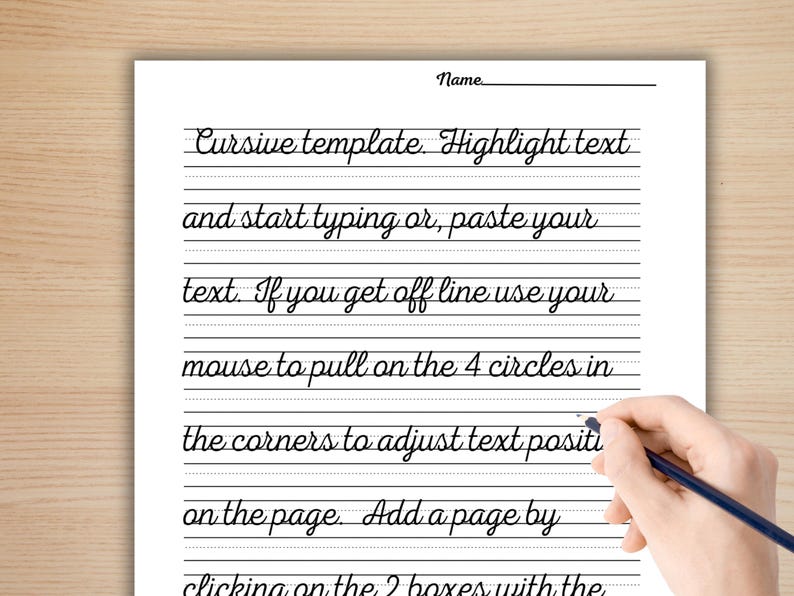 Name
Cursive template. Highlight text
and start typing or, paste your
text. If you get off line use your
mouse to pull on the 4 circles in
the corners to adjust text
on the page. Add a page by
clicking on the 2 boxes with the